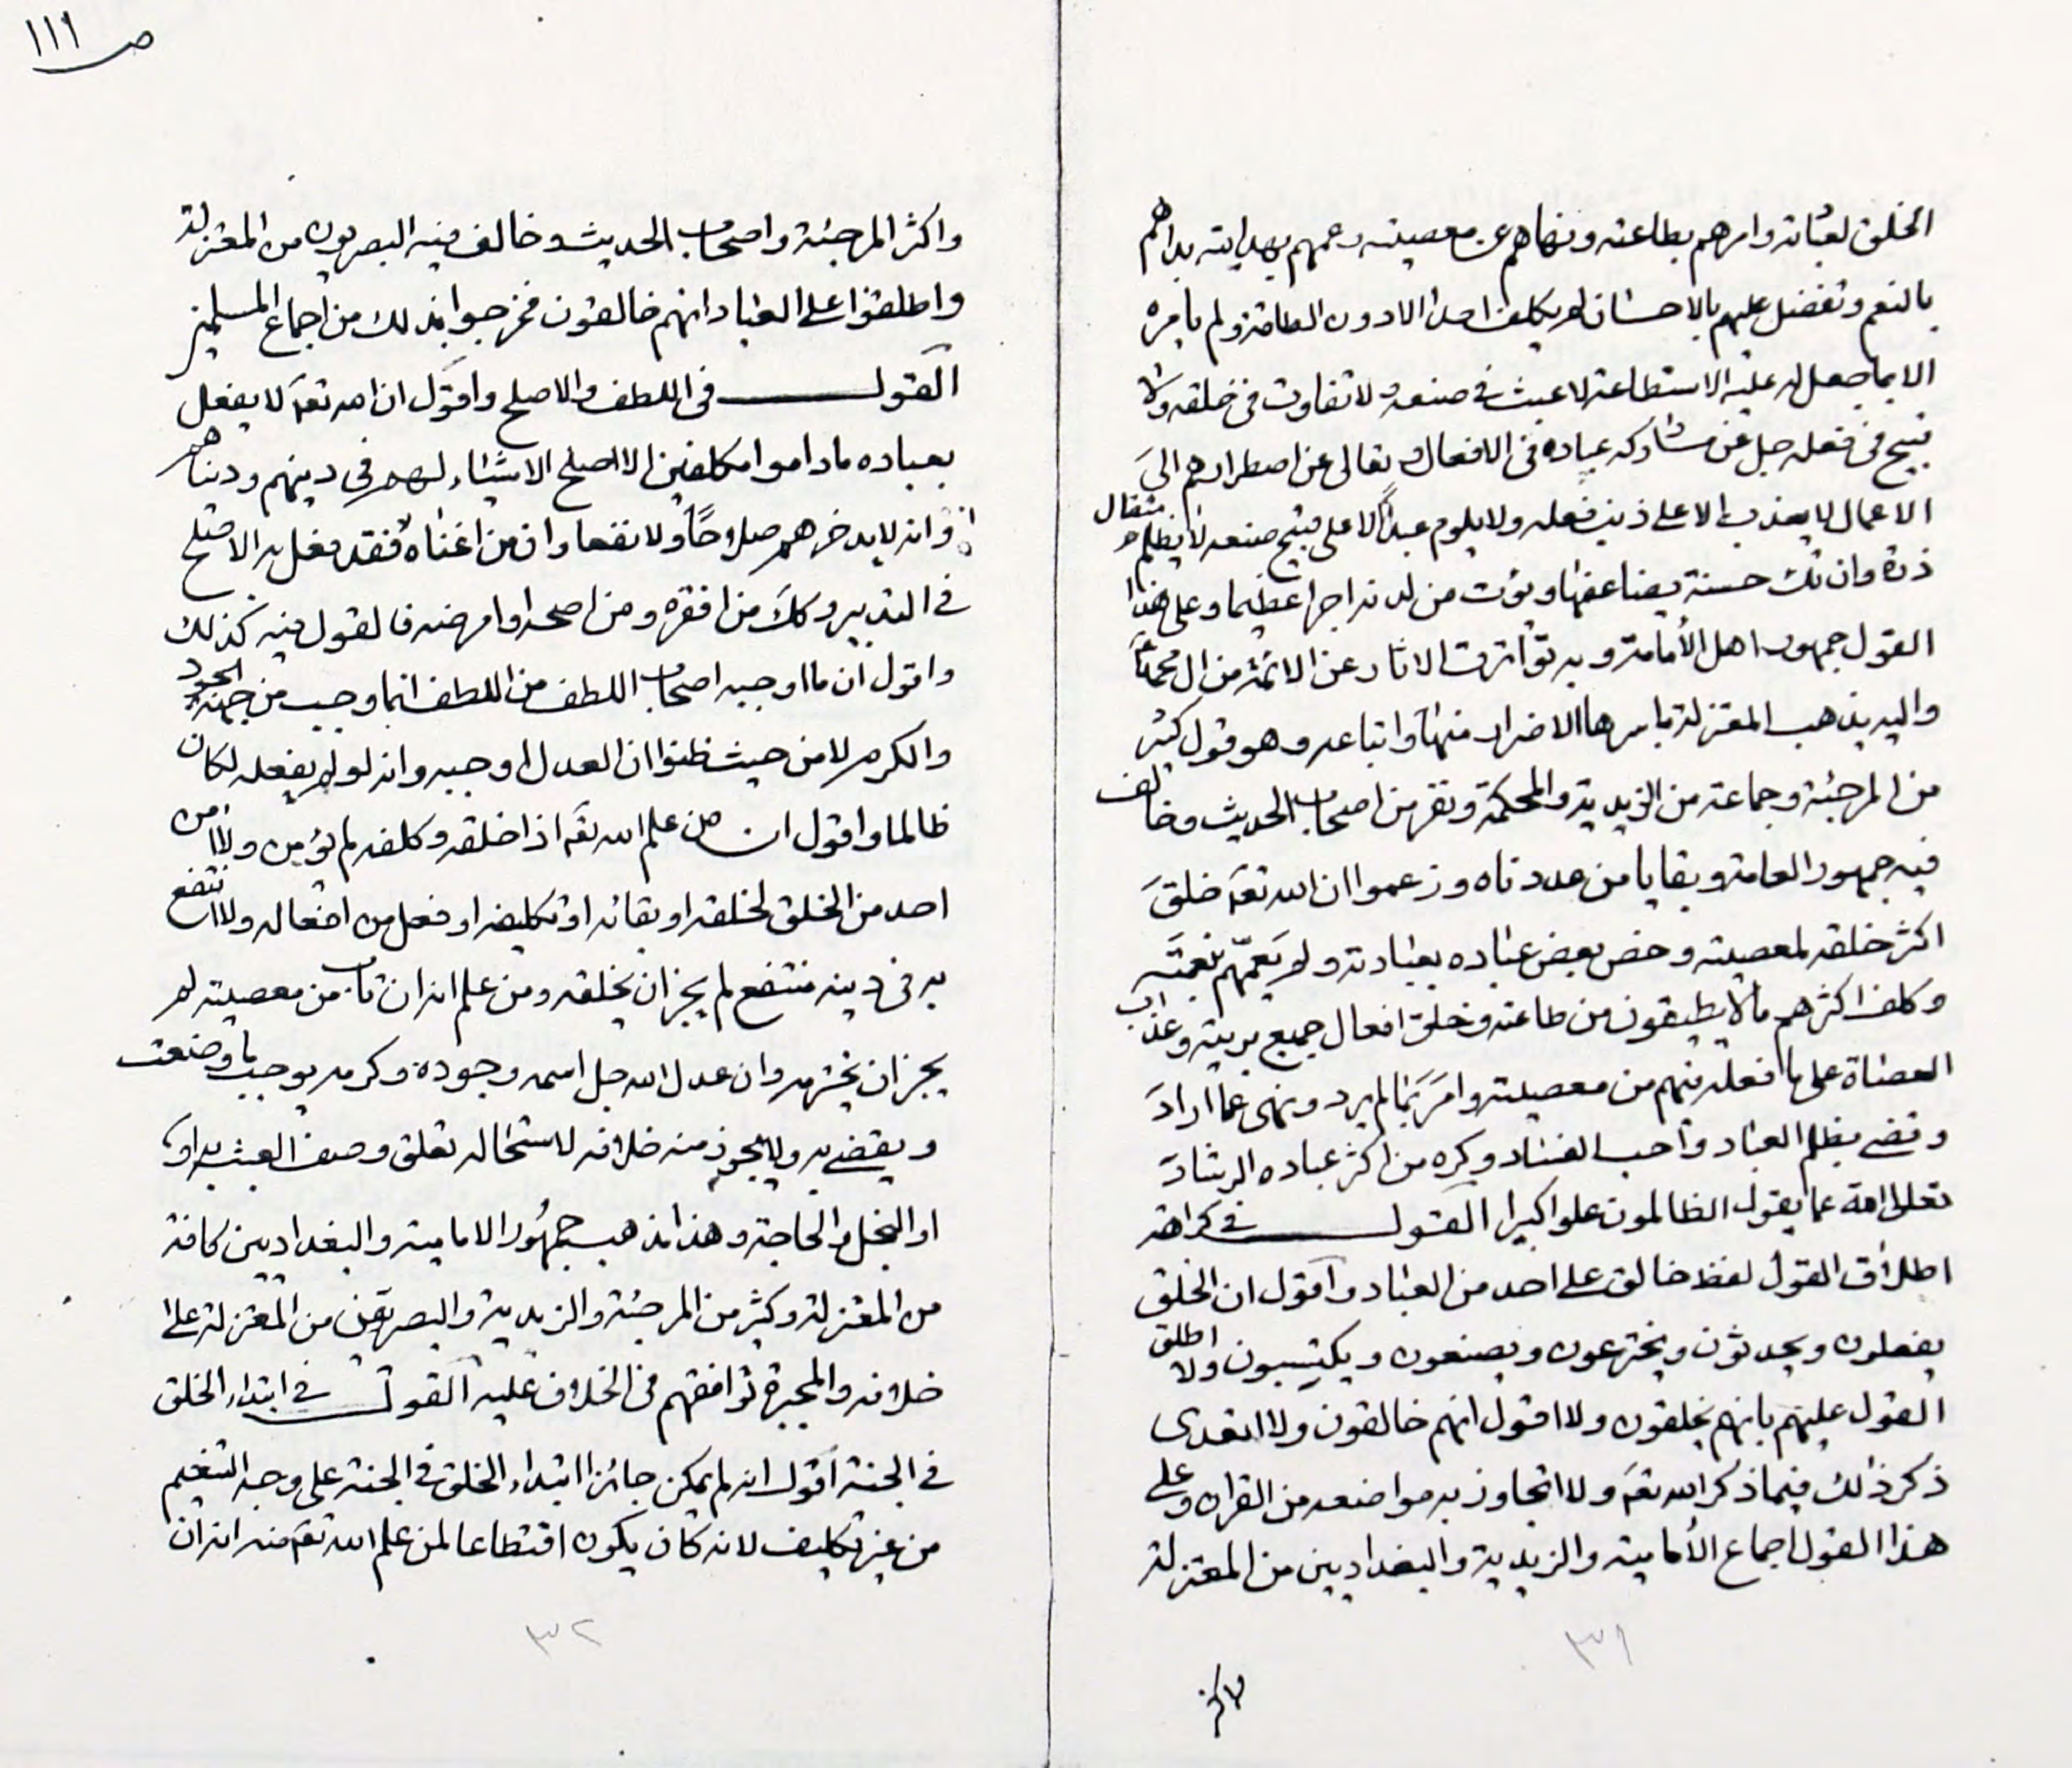 ص ١١١
الخلق لعبادته وامرهم بطاعته ونهاهم عن معصيته وعمهم بهدايته بداهم
بالنعم وتفضل عليهم بالاحسان لم يكلف احدا الا دون الطاقة ولم يامره
الا بما جعل له عليه الاستطاعة لا عبث في صنعه ولا تفاوت في خلقه ولا
قبيح في فعله جل عن مشاركة عباده في الافعال وتعالى عن اضطرارهم الى
الاعمال لا يعذب الا على ذنب فعله ولا يلوم عبدا الا على قبيح صنعه لا يظلم مثقال
ذرة وان تك حسنة يضاعفها ويؤت من لدنه اجرا عظيما وعلى هذا
القول جمهور اهل الأمامة وبه تواترت الاثار عن الائمة من ال محمد
واليه يذهب المعتزلة باسرها الا ضرار منها واتباعه وهو قول كثير
من المرجئة وجماعة من الزيدية والمحكمة ونفر من اصحاب الحديث وخالف
فيه جمهور العامة وبقايا من عددناه وزعموا ان الله تعه خلق
اكثر خلقه لمعصيته وخص بعض عباده بعبادته ولم يعمّهم بنعمته
وكلف اكثرهم ما لا يطيقون من طاعته وخلق افعال جميع بريته وعذب
العصاة على ما فعله فيهم من معصيته وامر بما لم يرد ونهى عما اراد
وقضى بظلم العباد واحب الفساد وكره من اكثر عباده الرشاد
تعالى الله عما يقول الظالمون علوا كبيرا القول في كراهة
اطلاق القول لفظ خالق على احد من العباد واقول ان الخلق
يفعلون ويحدثون ويخترعون ويصنعون ويكتسبون ولا اطلق
القول عليهم بانهم يخلقون ولا اقول انهم خالقون ولا اتعدى
ذكر ذلك فيما ذكر الله تعه ولا اتجاوز به مواضعه من القران وعلى
هذا القول اجماع الأمامية والزيدية والبغداديين من المعتزلة
٣١
واكثر
واكثر المرجئة واصحاب الحديث وخالف فيه البصريون من المعتزلة
واطلقوا على العباد انهم خالقون فخرجوا بذلك من اجماع المسلمين
القول في اللطف والاصلح واقول ان الله تعه لا يفعل
بعباده ما داموا مكلفين الا اصلح الاشياء لهم في دينهم ودنياهم
وانه لا يدخرهم صلاحًا ولا نفعا وان من اغناه فقد فعل به الاصلح
في التدبير وكك من افقره ومن اصحه او امرضه فالقول فيه كذلك
واقول ان ما اوجبه اصحاب اللطف من اللطف انما وجب من جهة الجود
والكرم لا من حيث ظنوا ان العدل اوجبه وانه لو لم يفعله لكان
ظالما واقول ان من علم الله تعه اذا خلقه وكلفه لم يؤمن ولا امن
احد من الخلق لخلقه او بقائه او تكليفه او فعل من افعاله ولا انتفع
به في دينه منتفع لم يجز ان يخلقه ومن علم انه ان تاب من معصيته لم
يجز ان يخترمه وان عدل الله جل اسمه وجوده وكرمه يوجب ما وصفت
ويقضى به ولا يجوز منه خلافه لاستحالة تعلق وصف العبث به او
او البخل والحاجة وهذا مذهب جمهور الامامية والبغداديين كافة
من المعتزلة وكثير من المرجئة والزيدية والبصريون من المعتزلة على
خلافه والمجبرة توافقهم في الخلاف عليه القول في ابتداء الخلق
في الجنة اقول انه لم يكن جائزا ابتداء الخلق في الجنة على وجه التنعيم
من غير تكليف لانه كان يكون اقتطاعا لمن علم الله تعه منه انه ان
٣٢